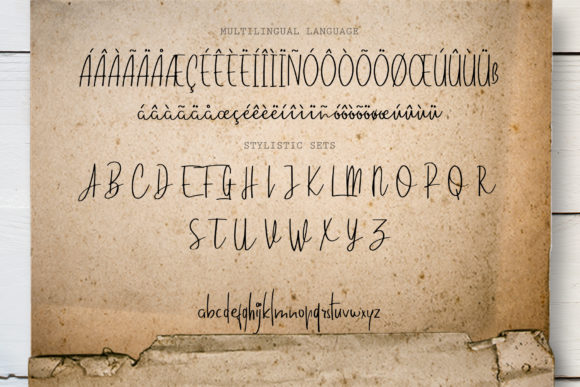 MULTILINGUAL LANGUAGE
ÁÂÀÃÄÅÆÇÉÊÈËÍÎÌÏÑÓÔÒÕÖØŒÚÛÙÜß
áâàãäåæçéêèëíîìïñóôòõöøœúûùü
STYLISTIC SETS
ABCDEFGHIJKLMNOPQR
STUVWXYZ
abcdefghijklmnopqrstuvwxyz